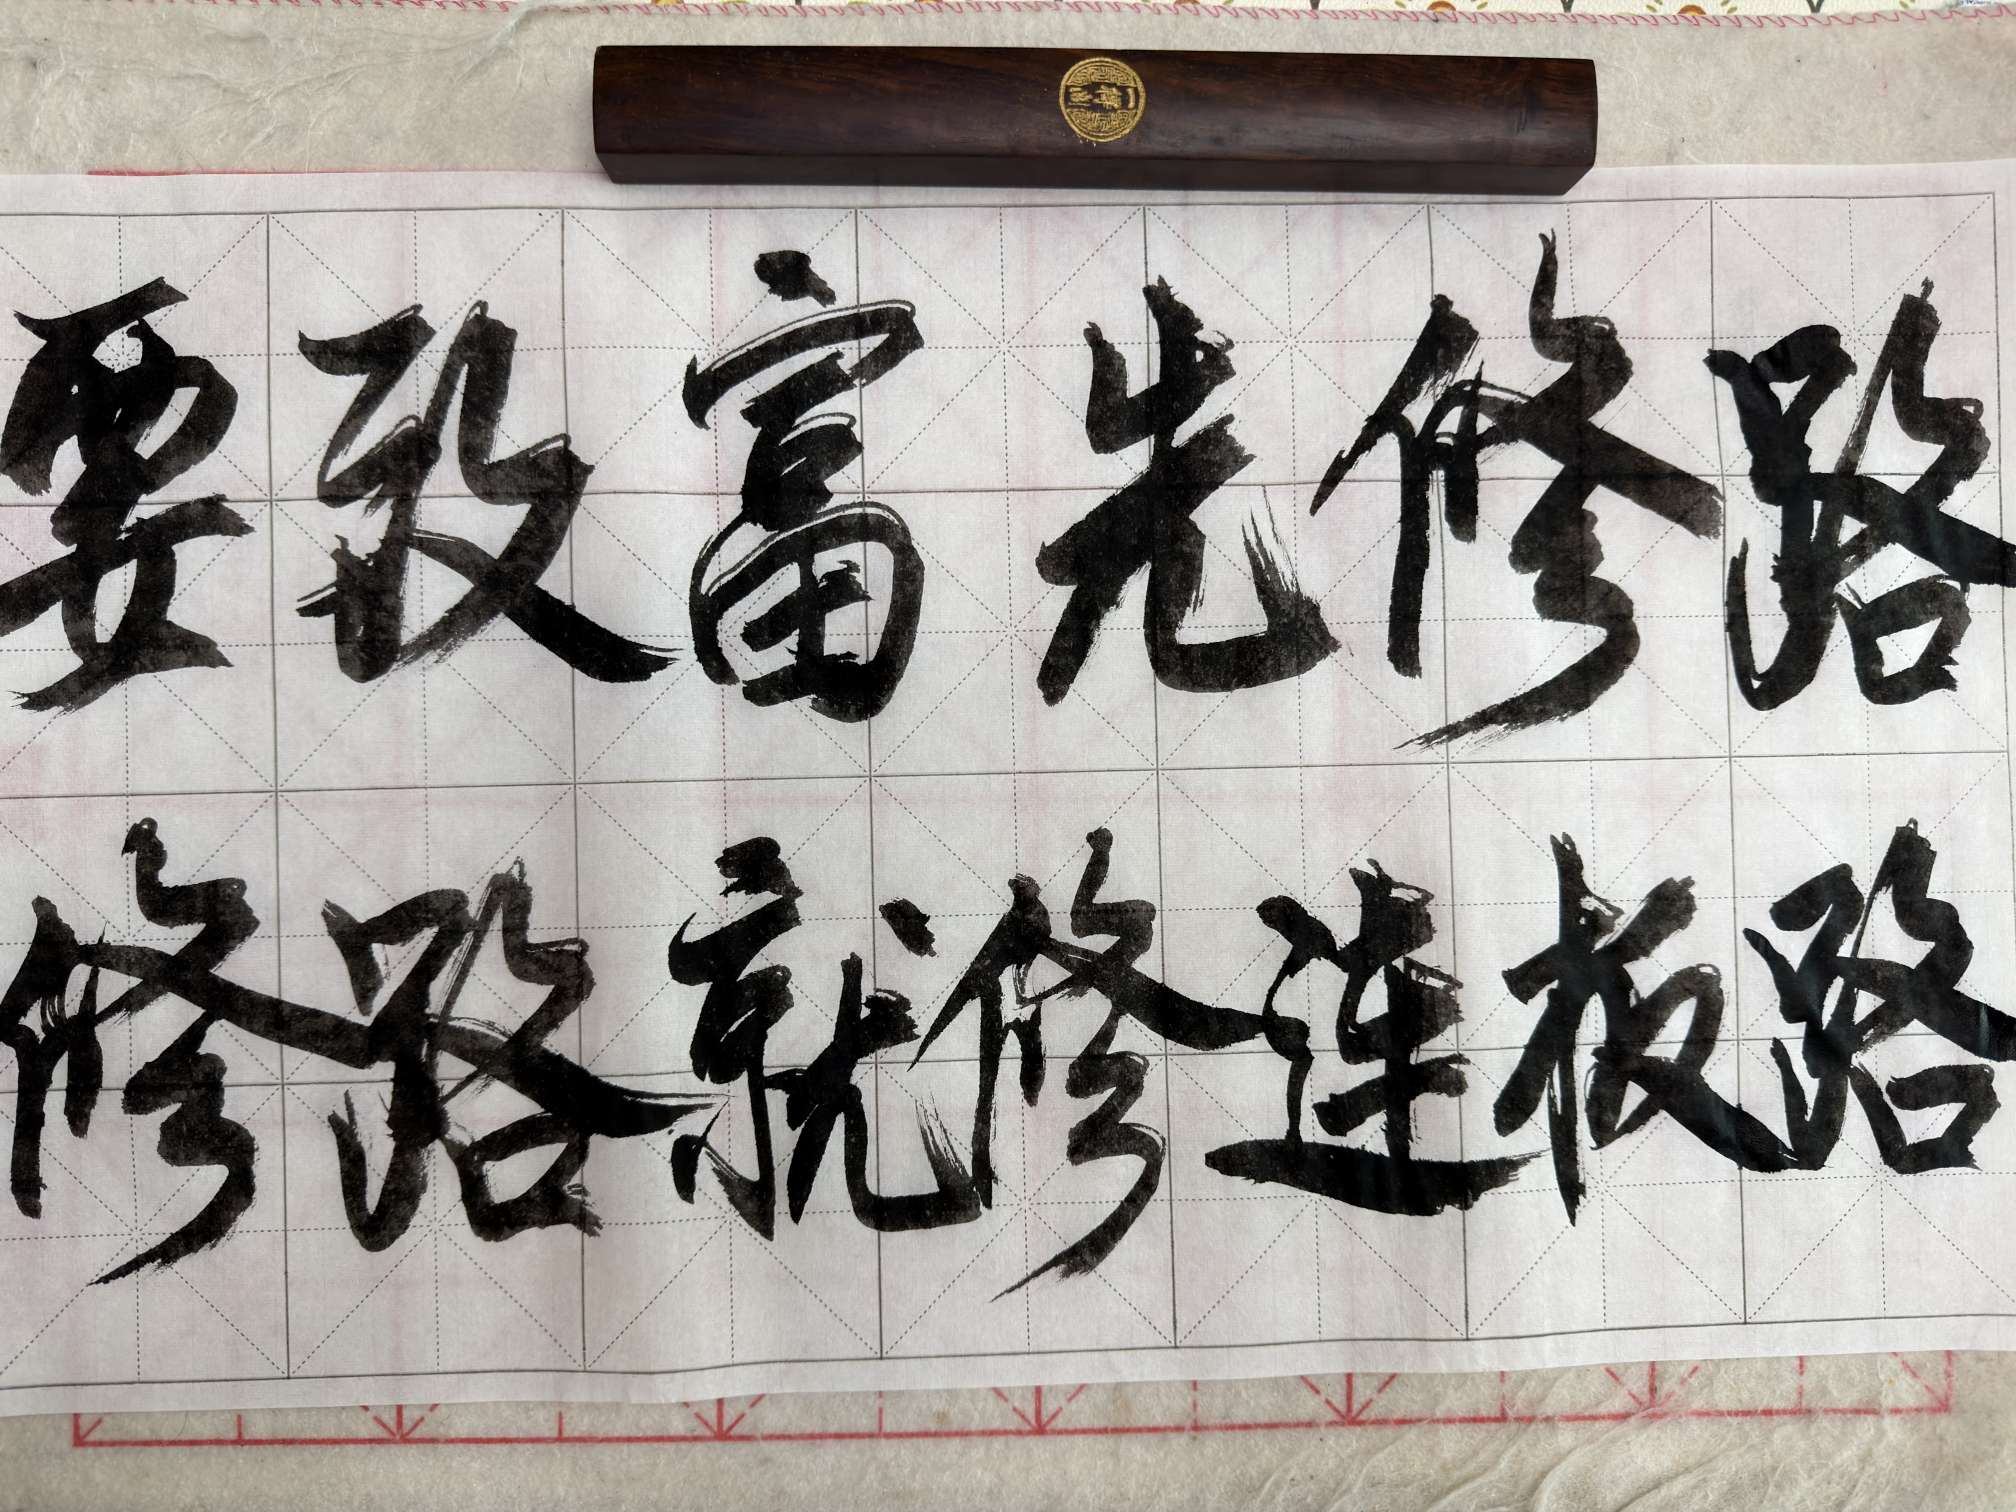 要致富先修路
修路就修連板路